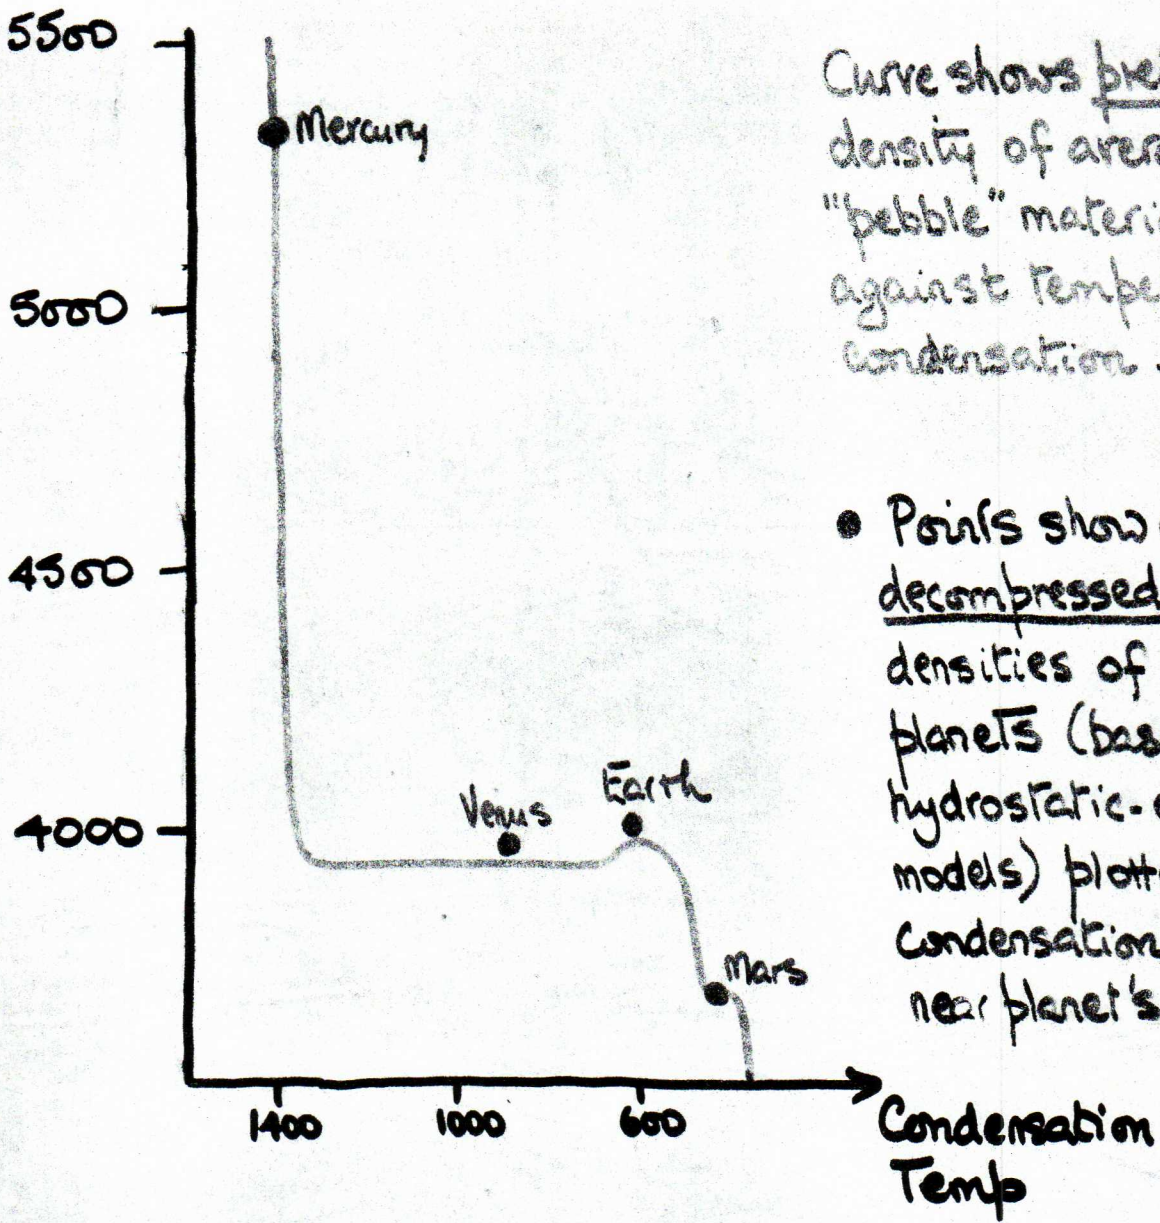 5500
5000
4500
4000
Mercury
Venus
Earth
Mars
1400 1000 600
Condensation
Temp
Curve shows
density of
"pebble"
against
condensation.
• Points show
decompressed
densities of
planets
models)
condensation
near planet's